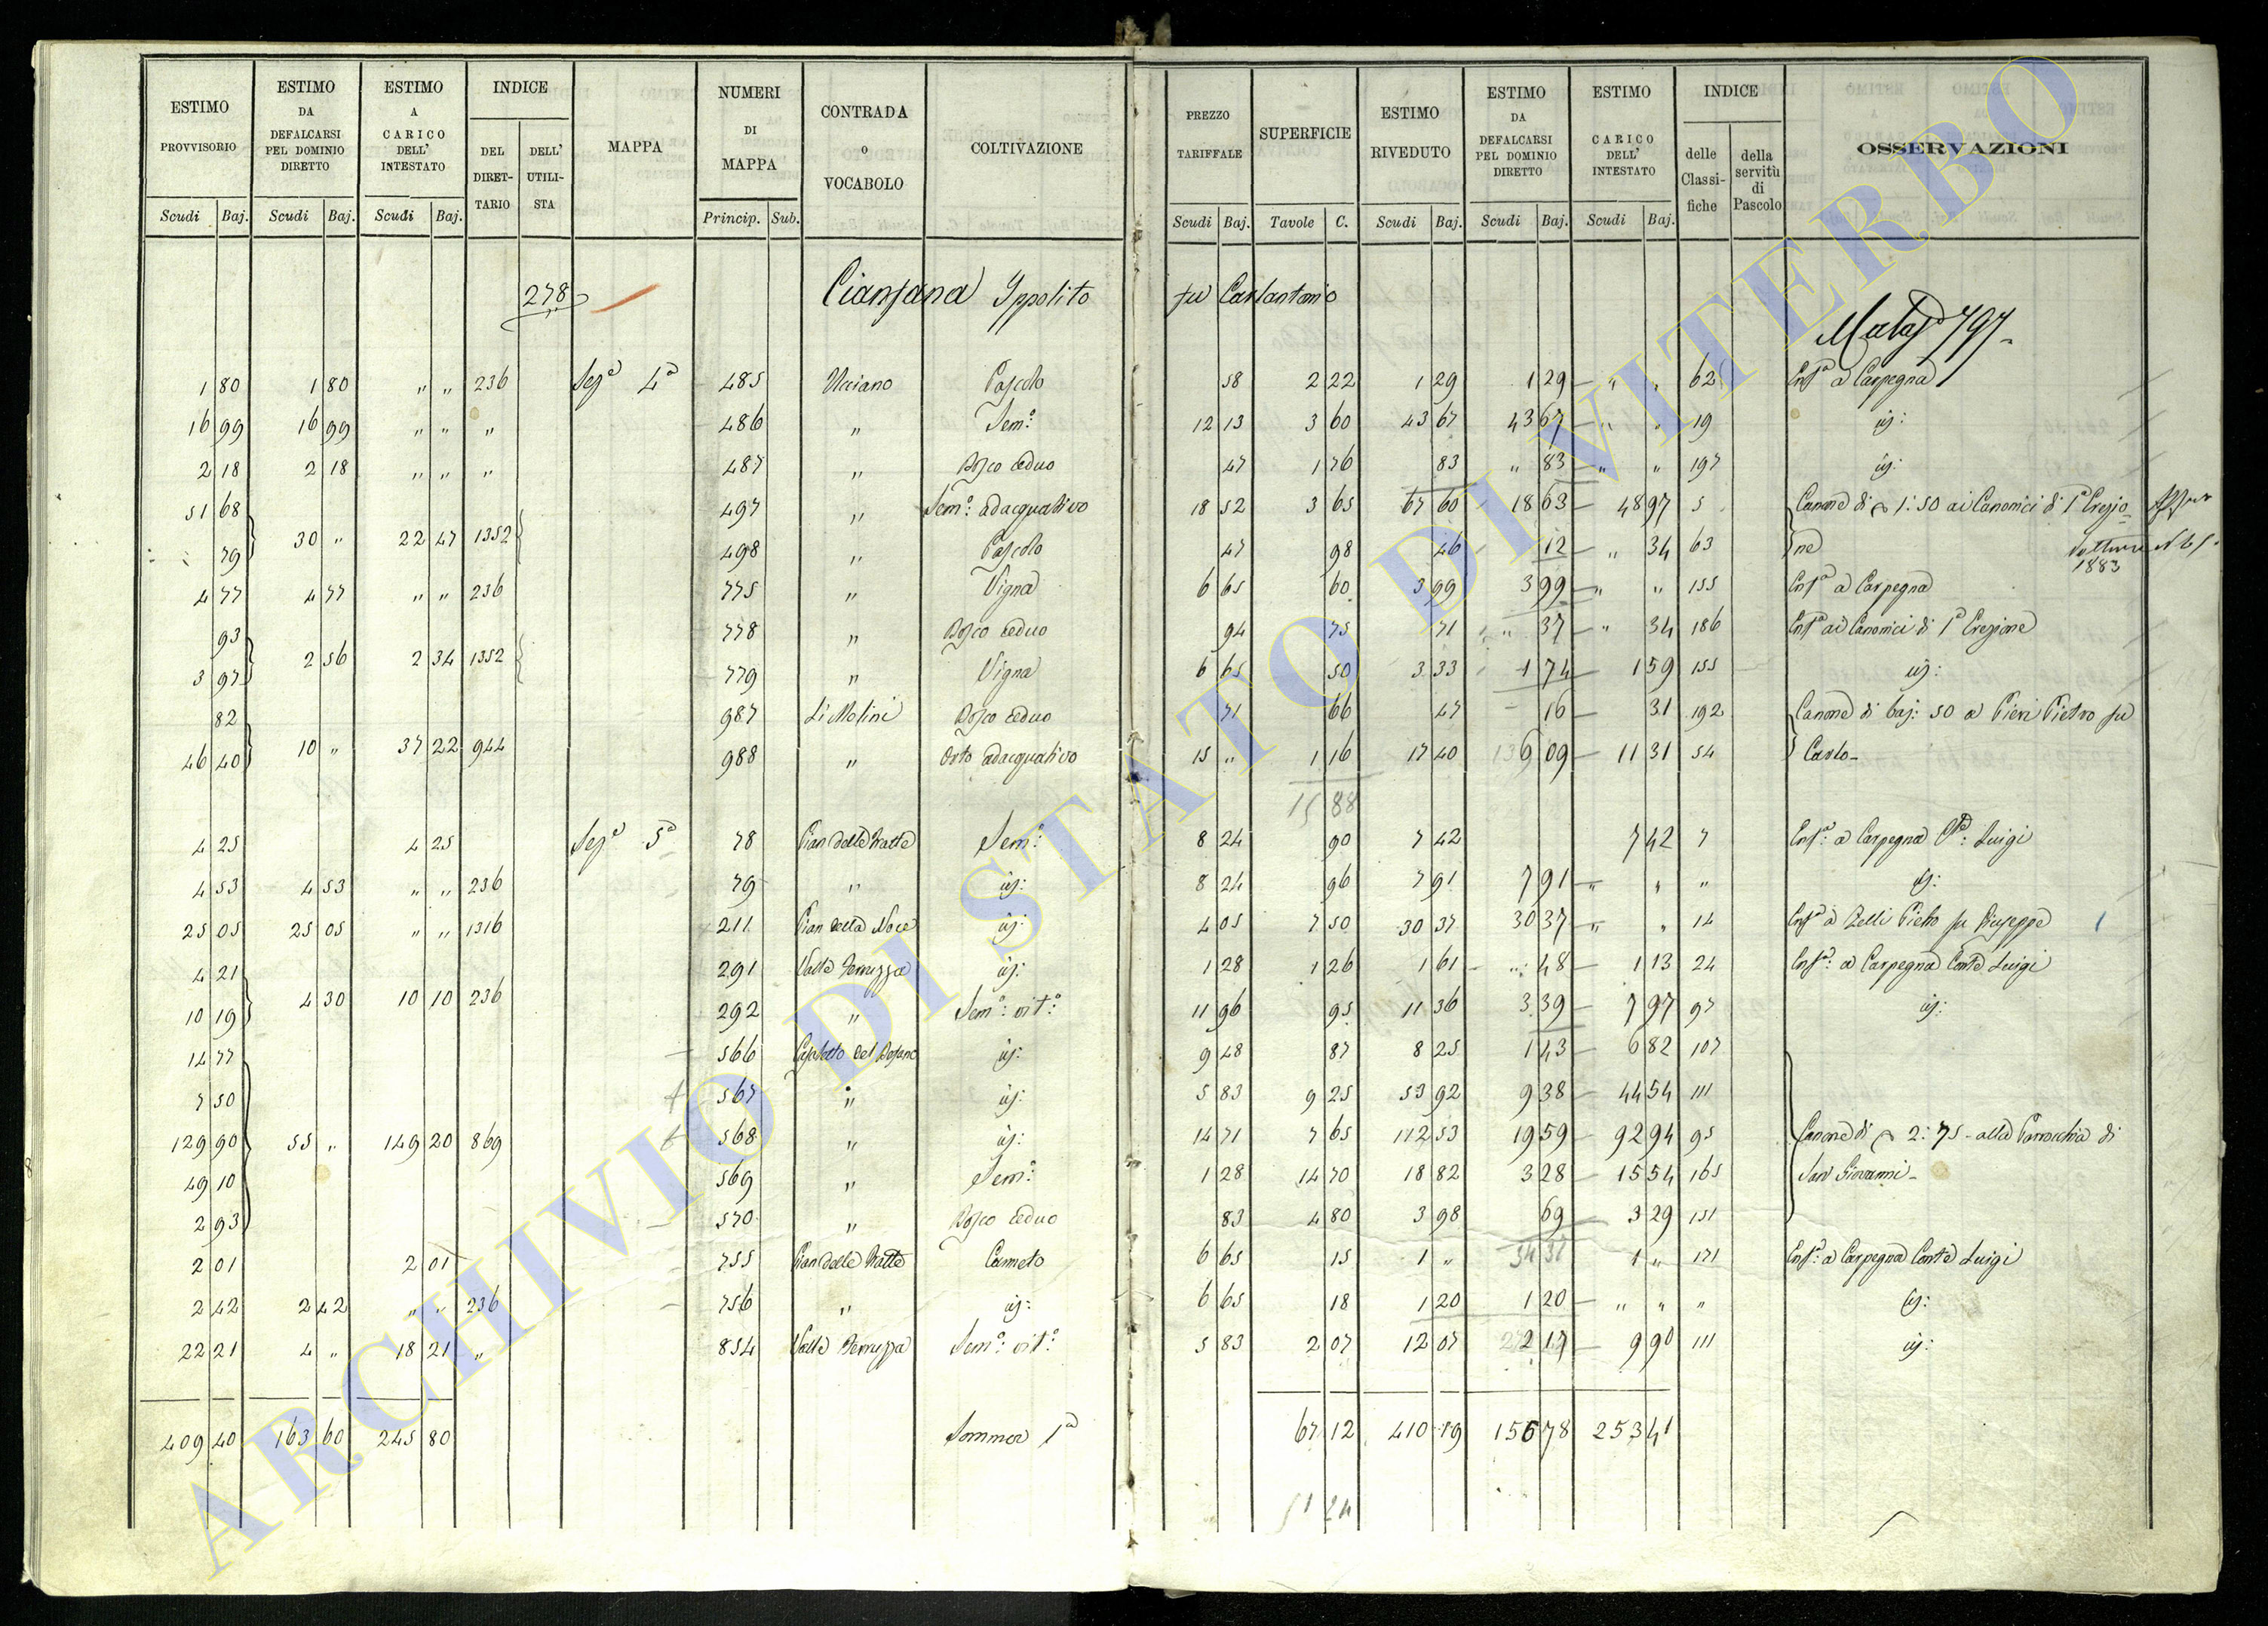 ESTIMO PROVVISORIO | ESTIMO DA DEFALCARSI PEL DOMINIO DIRETTO | ESTIMO A CARICO DELL' INTESTATO | INDICE DEL DIRETTARIO | DELL' UTILISTA | MAPPA | NUMERI DI MAPPA | CONTRADA O VOCABOLO | COLTIVAZIONE | PREZZO TARIFFALE | SUPERFICIE | ESTIMO RIVEDUTO | ESTIMO DA DEFALCARSI PEL DOMINIO DIRETTO | ESTIMO CARICO DELL' INTESTATO | INDICE delle Classifiche | della servitù di Pascolo | OSSERVAZIONI
Scudi Baj. | Scudi Baj. | Scudi Baj. | Princip. Sub. | Scudi Baj. | Tavole C. | Scudi Baj. | Scudi Baj. | Scudi Baj.
278 Ippolito fu Carlantonio
797
1 80 | 1 80 | " " | 236 | Sezª 4ª | 485 | Pascolo | 58 | 2 22 | 1 29 | 1 29 | " " | 62 | Enfª a Carpegna
16 99 | 16 99 | " " | " | 486 | " | Sem:º | 12 13 | 3 60 | 43 67 | 43 67 | " " | 19 | id:
2 18 | 2 18 | " " | " | 487 | " | Bosco ceduo | 47 | 1 76 | 83 | " 83 | " " | 197 | id:
51 68 | 497 | " | Sem:º adacquativo | 18 52 | 3 65 | 67 60 | 18 63 | 48 97 | 5 | Canone di 1:50 ai Canonici di 1ª Erezio=
79 | 30 " | 22 47 | 1352 | 498 | " | Pascolo | 47 | 98 | 46 | 12 | " 34 | 63 | ne
1883
4 77 | 4 77 | " " | 236 | 775 | " | Vigna | 6 65 | 60 | 3 99 | 3 99 | " " | 155 | Enfª a Carpegna
93 | 778 | " | Bosco ceduo | 94 | 75 | 71 | " 37 | " 34 | 186 | Enfª ai Canonici di 1ª Erezione
3 97 | 2 56 | 2 34 | 1352 | 779 | " | Vigna | 6 65 | 50 | 3 33 | 1 74 | 1 59 | 155 | id:
82 | 987 | Li Molini | Bosco ceduo | 71 | 66 | 47 | 16 | 31 | 192 | Canone di baj: 50 a Pieri Pietro fu
46 40 | 10 " | 37 22 | 944 | 988 | " | Orto adacquativo | 15 " | 1 16 | 17 40 | 6 09 | 11 31 | 54 | Carlo
15 88
4 25 | 4 25 | Sezª 5ª | 78 | Pian delle | Sem:º | 8 24 | 90 | 7 42 | 7 42 | 7 | Enfª: a Carpegna Luigi
4 53 | 4 53 | " " | 236 | 79 | " | id: | 8 24 | 96 | 7 91 | 7 91 | " " | " | id:
25 05 | 25 05 | " " | 1316 | 211 | Pian della Noce | id: | 4 05 | 7 50 | 30 37 | 30 37 | " " | 14 | Enfª a Zelli Pietro fu Giuseppe 1
4 21 | 291 | Valle | id: | 1 28 | 1 26 | 1 61 | " 48 | 1 13 | 24 | Enfª: a Carpegna Conte Luigi
10 19 | 4 30 | 10 10 | 236 | 292 | " | Sem:º vit:º | 11 96 | 95 | 11 36 | 3 39 | 7 97 | 97 | id:
14 77 | 566 | id: | 9 48 | 87 | 8 25 | 1 43 | 6 82 | 107
7 50 | 567 | " | id: | 5 83 | 9 25 | 53 92 | 9 38 | 44 54 | 111
129 90 | 55 " | 149 20 | 869 | 568 | " | id: | 14 71 | 7 65 | 112 53 | 19 59 | 92 94 | 95 | Canone di 2:75 alla Parrocchia di
49 10 | 569 | " | Sem:º | 1 28 | 14 70 | 18 82 | 3 28 | 15 54 | 165 | San Giovanni
2 93 | 570 | " | Bosco ceduo | 83 | 4 80 | 3 98 | 69 | 3 29 | 151
2 01 | 2 01 | 755 | Pian delle | Canneto | 6 65 | 15 | 1 " | 34 37 | 1 " | 171 | Enfª: a Carpegna Conte Luigi
2 42 | 2 42 | " " | 236 | 756 | " | id: | 6 65 | 18 | 1 20 | 1 20 | " " | " | id:
22 21 | 4 " | 18 21 | " | 854 | Valle | Sem:º vit:º | 5 83 | 2 07 | 12 07 | 2 17 | 9 90 | 111 | id:
409 40 | 163 60 | 245 80 | Somma 1ª | 67 12 | 410 19 | 156 78 | 253 41
51 24
ARCHIVIO DI STATO DI VITERBO